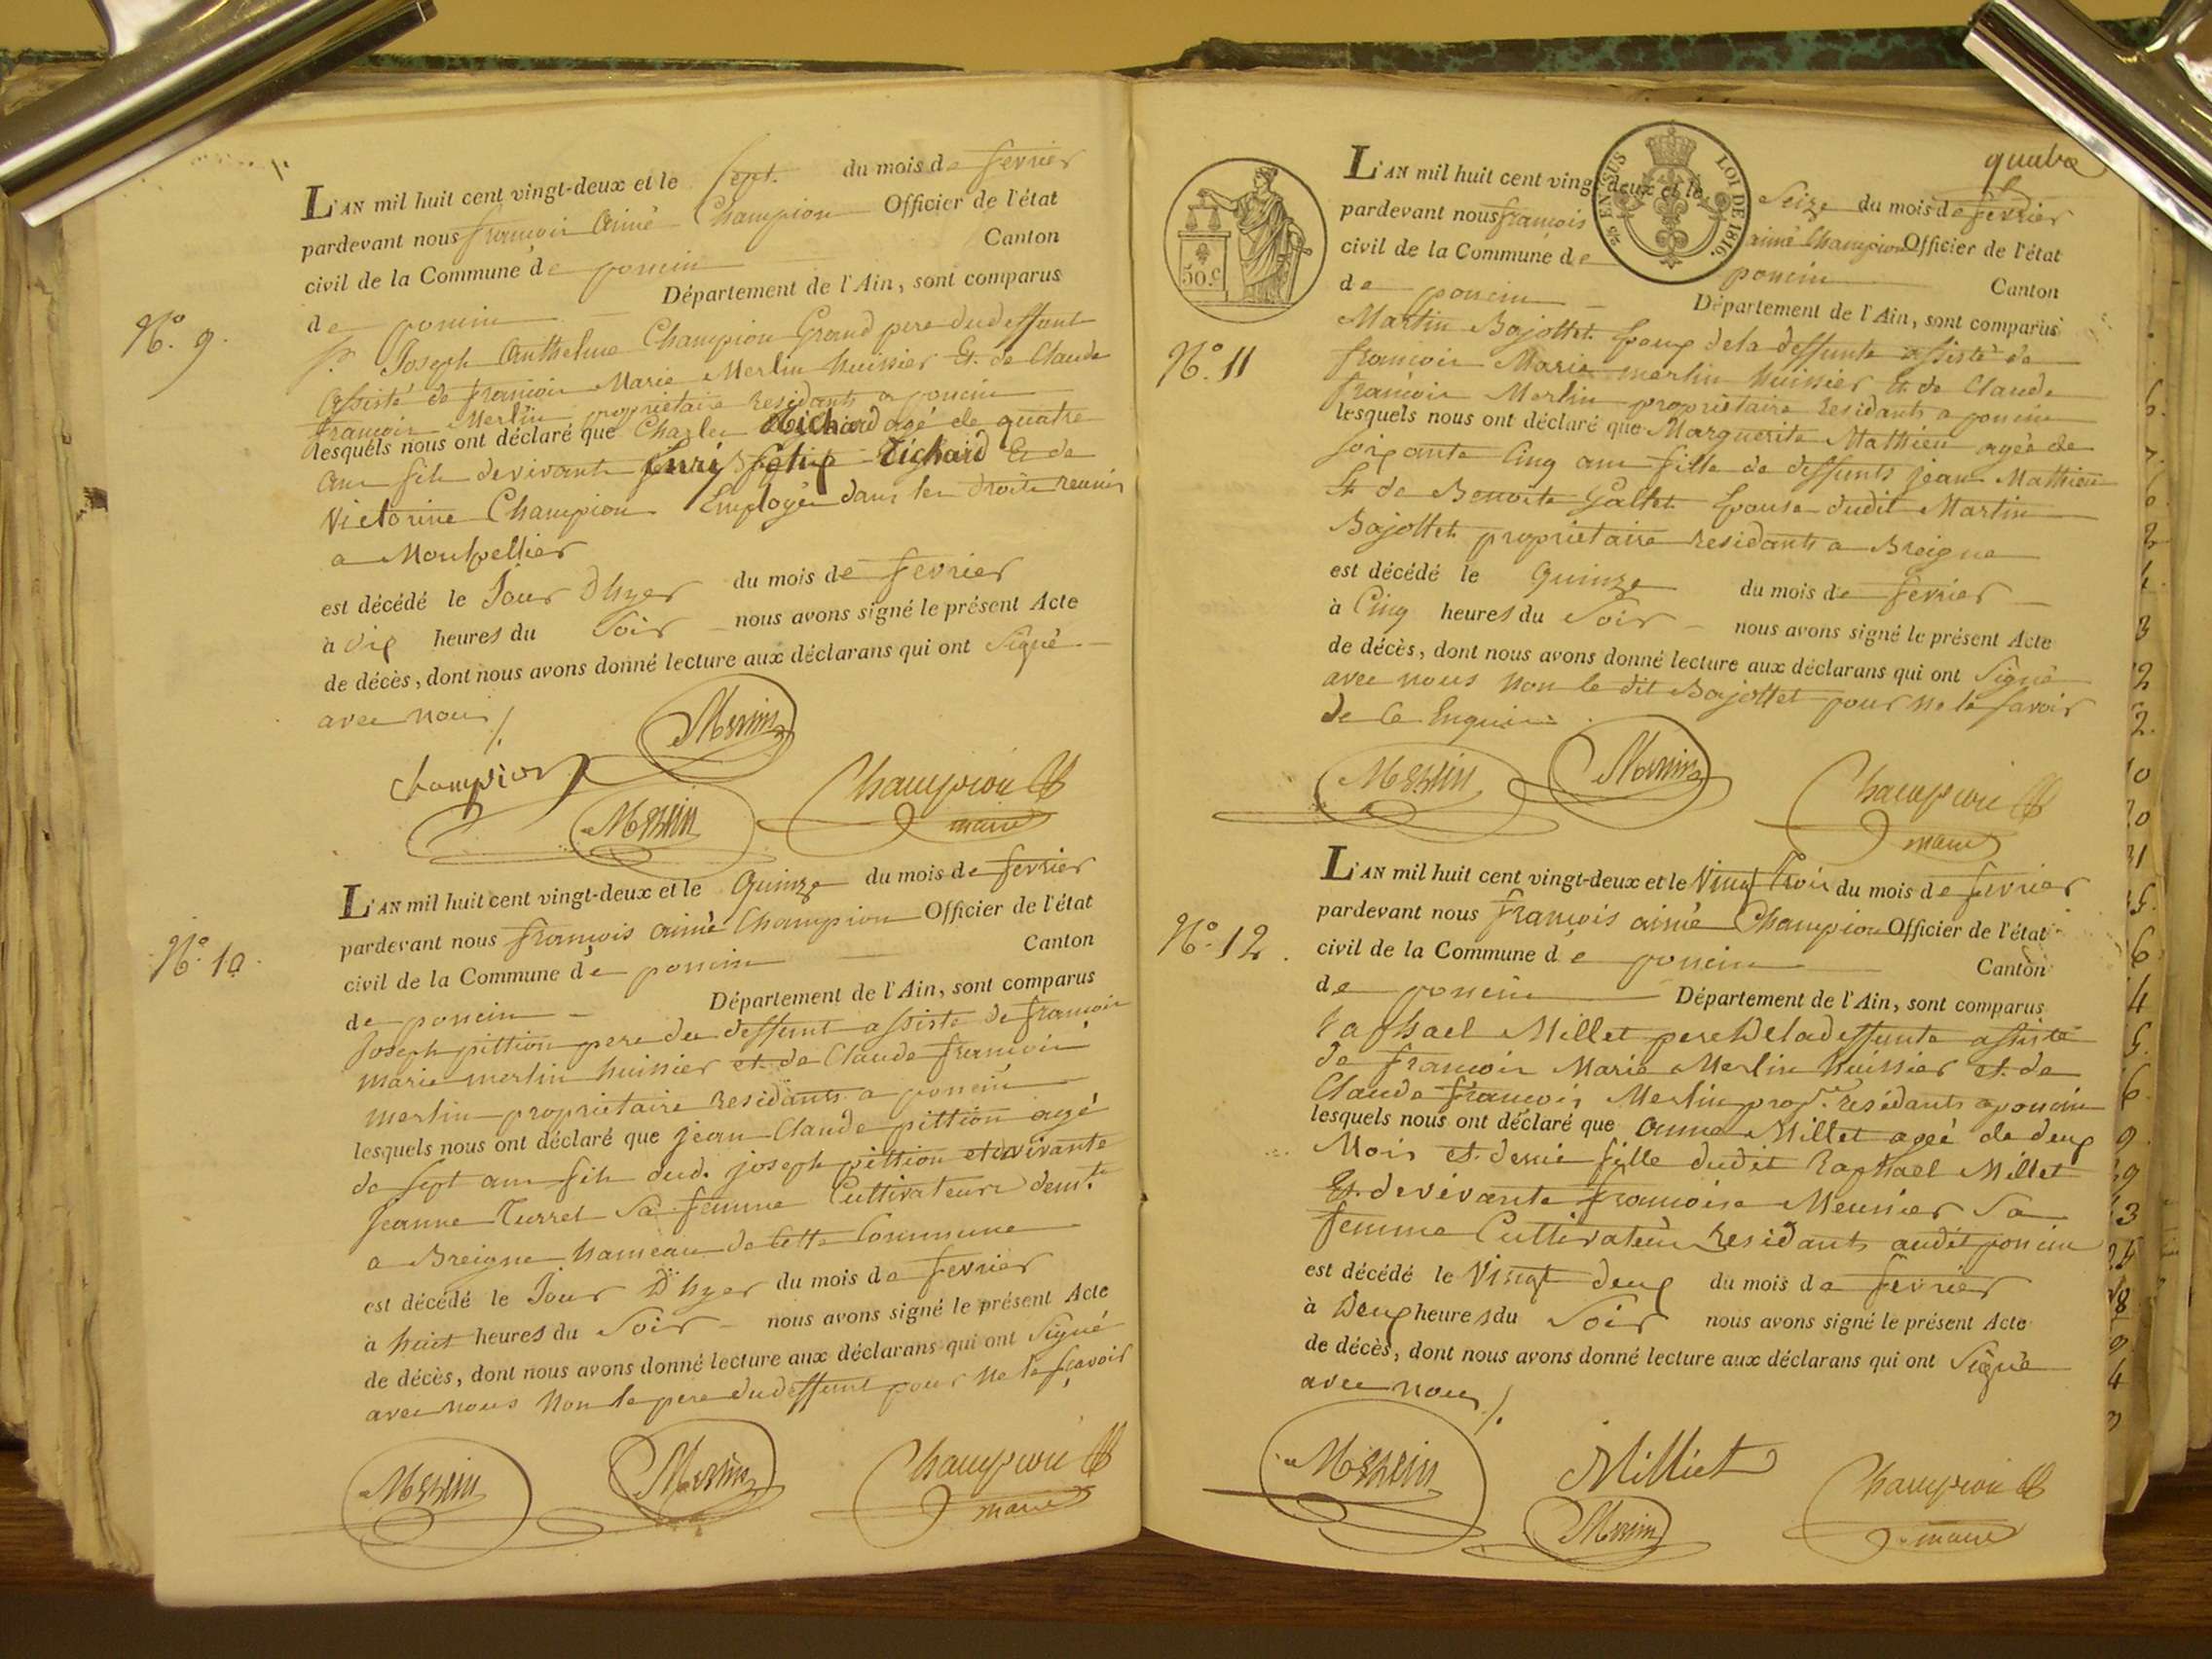 L'AN mil huit cent vingt-deux et le sept du mois de fevrier
pardevant nous françois aimé Champion Officier de l'état
civil de la Commune de poncin Canton
de poncin Département de l'Ain, sont comparus
N.º 9.
Sr. Joseph Anthelme Champion Grand pere du deffunt
assisté de françois Marie Merlin huissier Et de Claude
françois Merlin propriétaire residants a poncin
lesquels nous ont déclaré que Charles Richard agé de quatre
ans fils de vivants Richard Et de
Victorine Champion Employé dans les droits reunis
a Montpellier
est décédé le Jour D'hyer du mois de fevrier
à dix heures du Soir nous avons signé le présent Acte
de décès, dont nous avons donné lecture aux déclarans qui ont Signé
avec nous
Merlin
Champion
Merlin
Champion
maire
L'AN mil huit cent vingt-deux et le Quinze du mois de fevrier
pardevant nous françois aimé Champion Officier de l'état
civil de la Commune de poncin Canton
N.º 10.
de poncin Département de l'Ain, sont comparus
Joseph pittion pere du deffunt assisté de françois
marie merlin huissier et de Claude françois
merlin propriétaire residants a poncin
lesquels nous ont déclaré que jean Claude pittion agé
de sept ans fils dud. joseph pittion et de vivante
jeanne Turrel Sa femme Cultivateurs demt.
a Breigne hameau de Cette Commune
est décédé le Jour D'hyer du mois de fevrier
à huit heures du Soir nous avons signé le présent Acte
de décès, dont nous avons donné lecture aux déclarans qui ont Signé
avec nous Non le pere du deffunt pour ne le sçavoir
Merlin
Merlin
Champion
maire
quatre
50.c
25 EN SUS
LOI DE 1816.
L'AN mil huit cent vingt-deux et le Seize du mois de fevrier
pardevant nous françois aimé Champion Officier de l'état
civil de la Commune de poncin Canton
de poncin Département de l'Ain, sont comparus
N.º 11
Martin Bajollet Epoux de la deffunte assisté de
françois Marie merlin huissier Et de Claude
françois Merlin propriétaire residants a poncin
lesquels nous ont déclaré que Marguerite Mathieu agée de
soixante Cinq ans fille de deffunts jean Mathieu
Et de Benoite Epouse dudit Martin
Bajollet propriétaire residants a Breigne
est décédé le Quinze du mois de fevrier
à Cinq heures du Soir nous avons signé le présent Acte
de décès, dont nous avons donné lecture aux déclarans qui ont Signé
avec nous Non le dit Bajollet pour ne le savoir
de Ce Enquis
Merlin
Merlin
Champion
maire
L'AN mil huit cent vingt-deux et le Vingt Trois du mois de fevrier
pardevant nous françois aimé Champion Officier de l'état
N.º 12.
civil de la Commune de poncin Canton
de poncin Département de l'Ain, sont comparus
Raphael Millet pere De la deffunte assisté
de françois Marie Merlin huissier et de
Claude françois Merlin propre. residants a poncin
lesquels nous ont déclaré que anne Millet agée de deux
Mois et demie fille dudit Raphael Millet
Et de vivante françoise Meunier Sa
femme Cultivateurs Residants audit poncin
est décédé le Vingt deux du mois de fevrier
à Deux heures du Soir nous avons signé le présent Acte
de décès, dont nous avons donné lecture aux déclarans qui ont Signé
avec nous
Merlin
Milliet
Merlin
Champion
maire